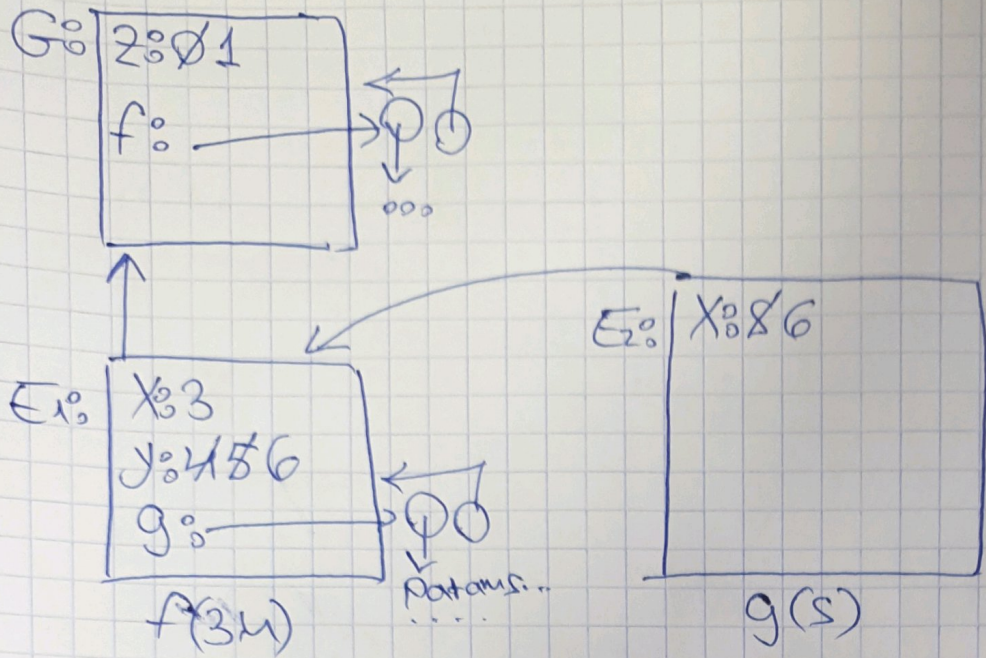 G: z: 0 1
f:
...
E1: x: 3
y: 4 5 6
g:
Params...
.....
f(3,4)
E2: x: 5 6
g(5)